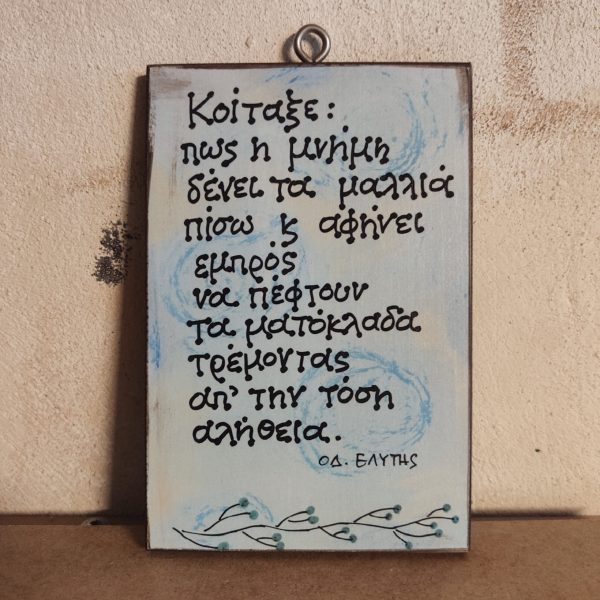 Κοίταξε:
πως η μνήμη
δένει τα μαλλιά
πίσω κ αφήνει
εμπρός
να πέφτουν
τα ματόκλαδα
τρέμοντας
απ' την τόση
αλήθεια.
ΟΔ. ΕΛΥΤΗς